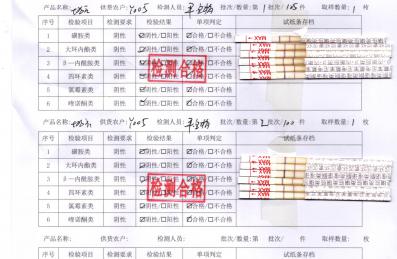 产品名称: 供货农户: Y005 检测人员: 批次/数量:第 1 批次/ 105 件 取样数量: 1 枚
序号 检验项目 检测要求 检验结果 单项判定 试纸条存档
1 磺胺类 阴性 ☑阴性/☐阳性 ☑合格/☐不合格
2 大环内酯类 阴性 ☑阴性/☐阳性 ☑合格/☐不合格
3 β-内酰胺类 阴性 ☑阴性/☐阳性 ☑合格/☐不合格
4 四环素类 阴性 ☑阴性/☐阳性 ☑合格/☐不合格
5 氯霉素类 阴性 ☑阴性/☐阳性 ☑合格/☐不合格
6 喹诺酮类 阴性 ☑阴性/☐阳性 ☑合格/☐不合格
检测合格
MAX
产品名称: 供货农户: Y005 检测人员: 批次/数量:第 2 批次/ 100 件 取样数量: 1 枚
序号 检验项目 检测要求 检验结果 单项判定 试纸条存档
1 磺胺类 阴性 ☑阴性/☐阳性 ☑合格/☐不合格
2 大环内酯类 阴性 ☑阴性/☐阳性 ☑合格/☐不合格
3 β-内酰胺类 阴性 ☑阴性/☐阳性 ☑合格/☐不合格
4 四环素类 阴性 ☑阴性/☐阳性 ☑合格/☐不合格
5 氯霉素类 阴性 ☑阴性/☐阳性 ☑合格/☐不合格
6 喹诺酮类 阴性 ☑阴性/☐阳性 ☑合格/☐不合格
检测合格
MAX
产品名称: 供货农户: 检测人员: 批次/数量:第 批次/ 件 取样数量: 枚
序号 检验项目 检测要求 检验结果 单项判定 试纸条存档